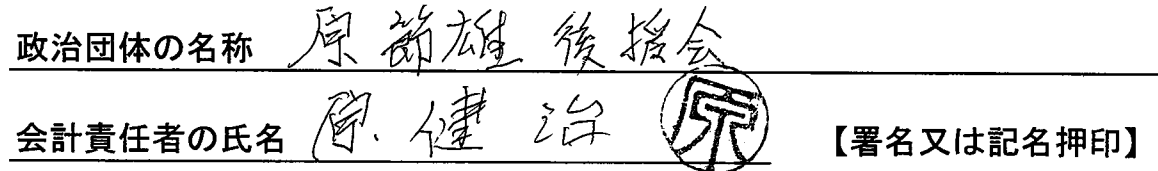 政治団体の名称 原節雄後援会
会計責任者の氏名 原健治 原 【署名又は記名押印】